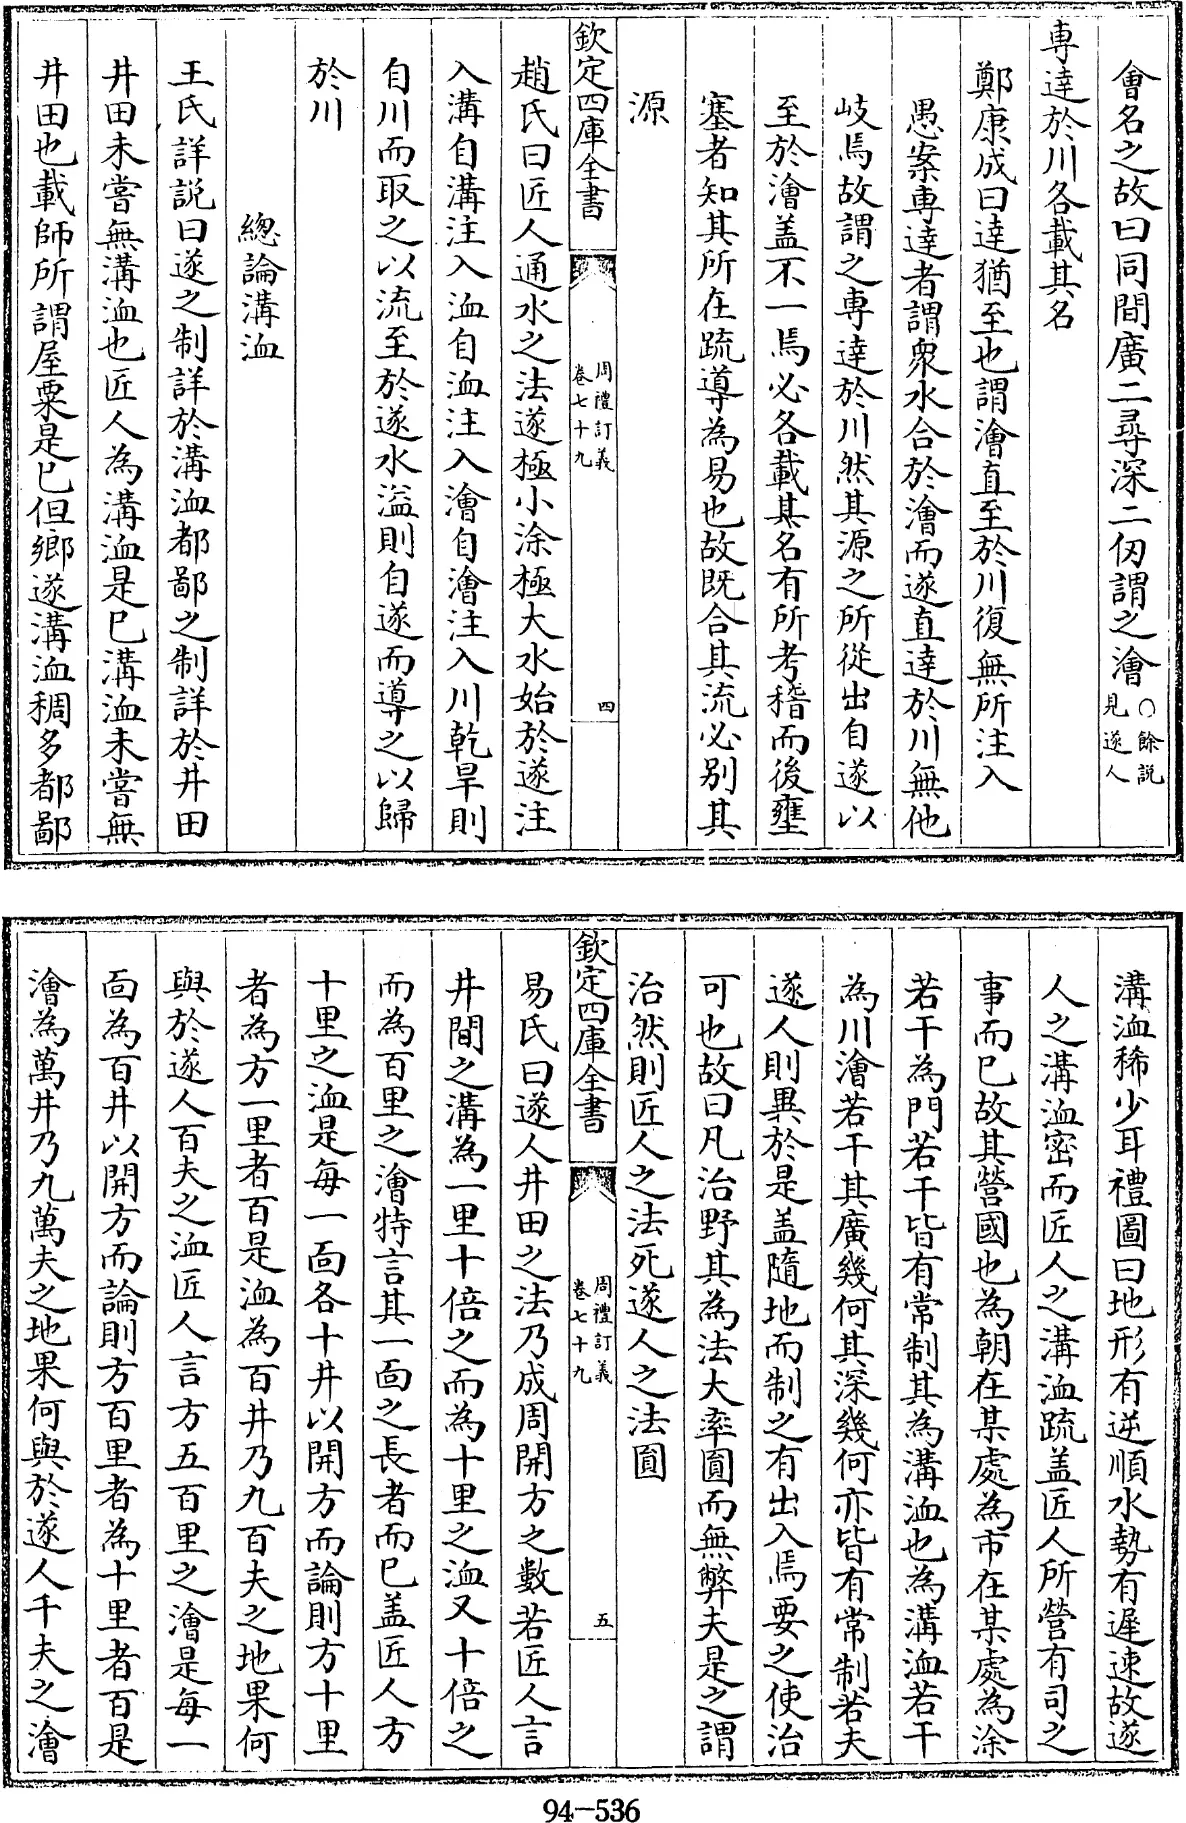 會名之故曰同間廣二尋深二仞謂之澮○餘説見遂人
專達於川各載其名
鄭康成曰達猶至也謂澮直至於川復無所注入
愚案專達者謂衆水合於澮而遂直達於川無他
岐焉故謂之專達於川然其源之所從出自遂以
至於澮盖不一焉必各載其名有所考稽而後壅
塞者知其所在疏導為易也故既合其流必别其
源
欽定四庫全書
周禮訂義
卷七十九
四
趙氏曰匠人通水之法遂極小涂極大水始於遂注
入溝自溝注入洫自洫注入澮自澮注入川乾旱則
自川而取之以流至於遂水溢則自遂而導之以歸
於川
總論溝洫
王氏詳説曰遂之制詳於溝洫都鄙之制詳於井田
井田未嘗無溝洫也匠人為溝洫是已溝洫未嘗無
井田也載師所謂屋粟是已但鄉遂溝洫稠多都鄙
溝洫稀少耳禮圖曰地形有逆順水勢有遲速故遂
人之溝洫密而匠人之溝洫疏盖匠人所營有司之
事而已故其營國也為朝在某處為市在某處為涂
若干為門若干皆有常制其為溝洫也為溝洫若干
為川澮若干其廣幾何其深幾何亦皆有常制若夫
遂人則異於是盖隨地而制之有出入焉要之使治
可也故曰凡治野其為法大率圓而無弊夫是之謂
治然則匠人之法死遂人之法圓
欽定四庫全書
周禮訂義
卷七十九
五
易氏曰遂人井田之法乃成周開方之數若匠人言
井間之溝為一里十倍之而為十里之洫又十倍之
而為百里之澮特言其一面之長者而已盖匠人方
十里之洫是每一面各十井以開方而論則方十里
者為方一里者百是洫為百井乃九百夫之地果何
與於遂人百夫之洫匠人言方五百里之澮是每一
面為百井以開方而論則方百里者為十里者百是
澮為萬井乃九萬夫之地果何與於遂人千夫之澮
94-536